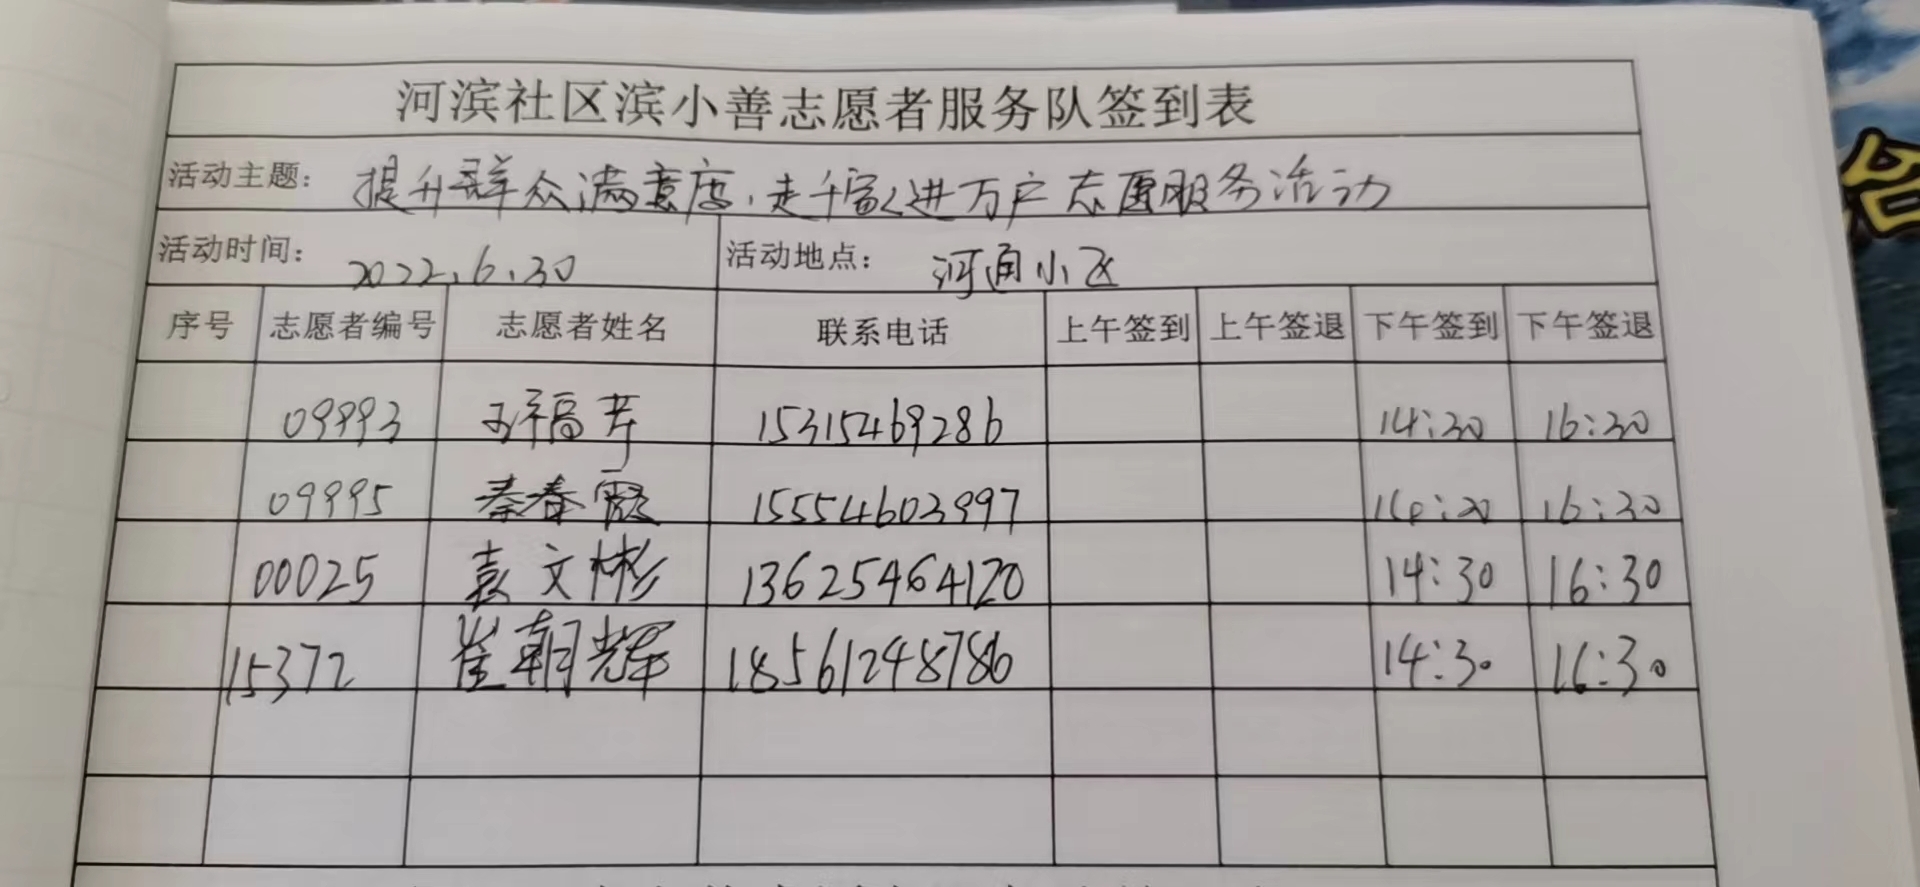 河滨社区滨小善志愿者服务队签到表
活动主题： 提升群众满意度，走千家进万户志愿服务活动
活动时间： 2022.6.30 活动地点： 河通小区
序号 志愿者编号 志愿者姓名 联系电话 上午签到 上午签退 下午签到 下午签退
09993 15315469286 14:30 16:30
09995 秦春霞 15554603997 16:30
00025 袁文彬 13625464120 14:30 16:30
15372 崔朝辉 18561248786 14:30 16:30